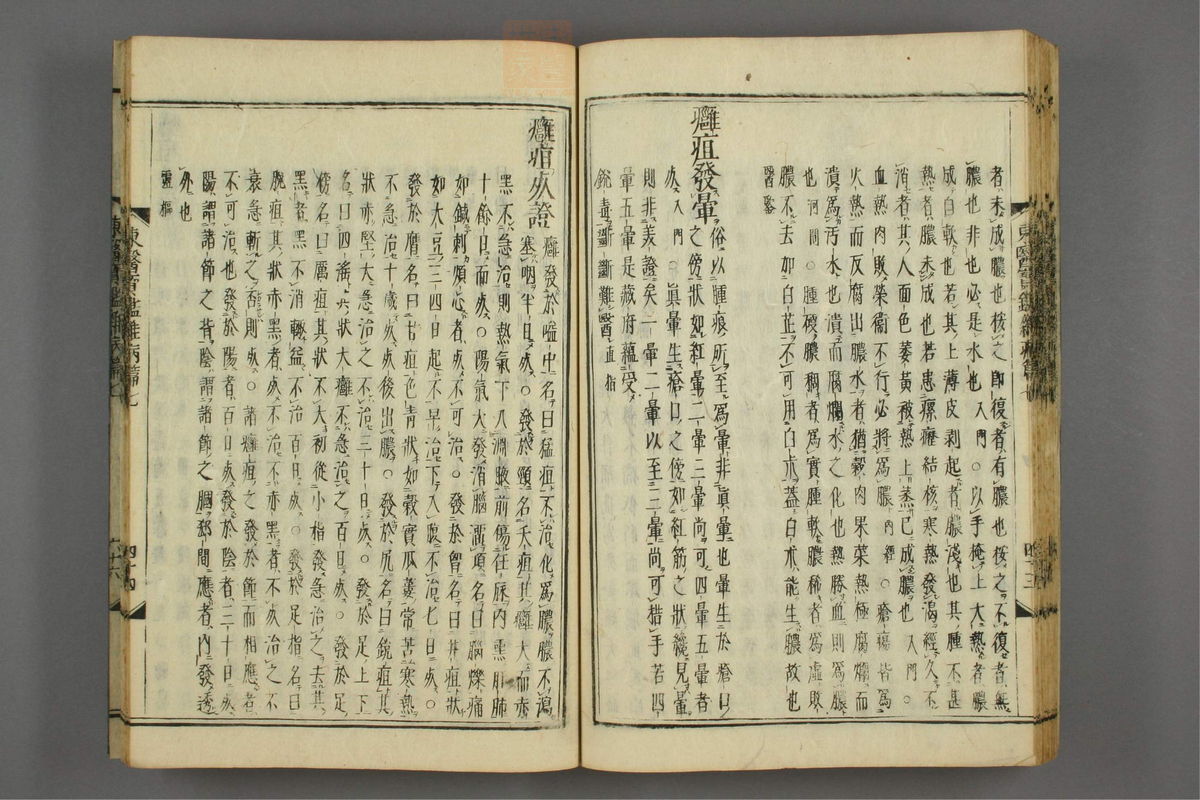 者未成膿也按之即復者有膿也按之不復者無
膿也非也必是水也入門○以手掩上大熱者膿
成自軟也若其上薄皮剥起者膿淺也其腫不甚
熱者膿未成也若患瘰癧結核寒熱發渴經久不
消者其人面色萎黃被熱上蒸已成膿也入門○
血熱肉敗榮衛不行必將爲膿內經○瘡瘍皆爲
火熱而反腐出膿水者猶穀肉果菜熱極腐爛而
潰爲汚水也潰而腐爛水之化也熱勝血則爲膿
也河間○腫硬膿稠者爲實腫軟膿稀者爲虛敗
膿不去如白芷不可用白朮蓋白朮能生膿故也
醫鑒
癰疽發暈 俗以腫痕所至爲暈非眞暈也暈生於瘡口
之傍狀如紅暈二暈三暈尚可四暈五暈者
死入門○眞暈生瘡口之傍如紅筋之狀纔見暈
則非美證矣一暈二暈以至三暈尚可措手若四
暈五暈是藏府蘊受
銳毒斷斷難醫直指
東醫寶鑑雜病篇七 四十三
癰疽死證 癰發於嗌中名曰猛疽不治化爲膿膿不瀉
塞咽半日死○發於頸名夭疽其癰大而赤
黑不急治則熱氣下入淵腋前傷任脉內熏肝肺
十餘日而死○陽氣大發消腦濡項名曰腦爍痛
如鍼刺煩心者死不可治○發於胷名曰井疽狀
如大豆三四日起不早治下入腹不治七日死○
發於膺名曰甘疽色青狀如穀實瓜蔞常苦寒熱
不急治十歲死死後出膿○發於尻名曰銳疽其
狀赤堅大急治之不治三十日死○發於足上下
名曰四淫其狀大癰不急治之百日死○發於足
傍名曰厲疽其狀不大初從小指發急治之去其
黑者黑不消輒益不治百日死○發於足指名曰
脫疽其狀赤黑者死不治不赤黑者不死治之不
衰急斬之否則死○諸癰疽之發於節而相應者
不可治也發於陽者百日死發於陰者三十日死
陽謂諸節之背陰謂諸節之膕郄間應者內發透
外也
靈樞
東醫寶鑑雜病篇七 四十四